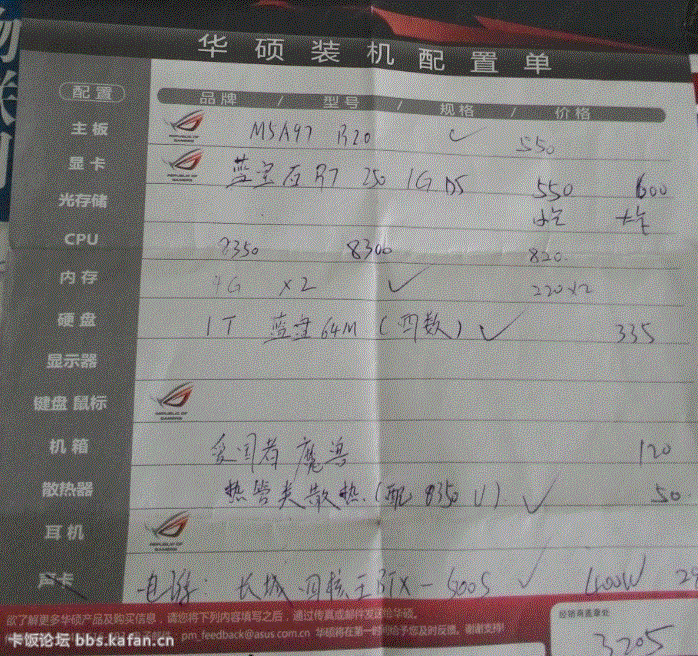 华硕装机配置单
配置 品牌 / 型号 / 规格 / 价格
主板 REPUBLIC OF GAMERS M5A97 R20 ✓ 550
显卡 REPUBLIC OF GAMERS 蓝宝石 R7 250 1G D5 550 600
光存储
CPU 8350 8300 820
内存 4G ×2 ✓ 220×2
硬盘 1T 蓝盘 64M (四数) ✓ 335
显示器
键盘 鼠标 REPUBLIC OF GAMERS
机箱 爱国者 魔兽 120
散热器 热管类散热 (配 8350 U) ✓ 50
耳机 REPUBLIC OF GAMERS
声卡 电源: 长城 四核王 BTX-500S ✓ 400W
欲了解更多华硕产品及购买信息,请您将下列内容填写之后,通过传真或邮件发送给华硕。
pm_feedback@asus.com.cn 华硕将在第一时间给予您及时反馈。谢谢支持!
经销商盖章处
3205
卡饭论坛 bbs.kafan.cn